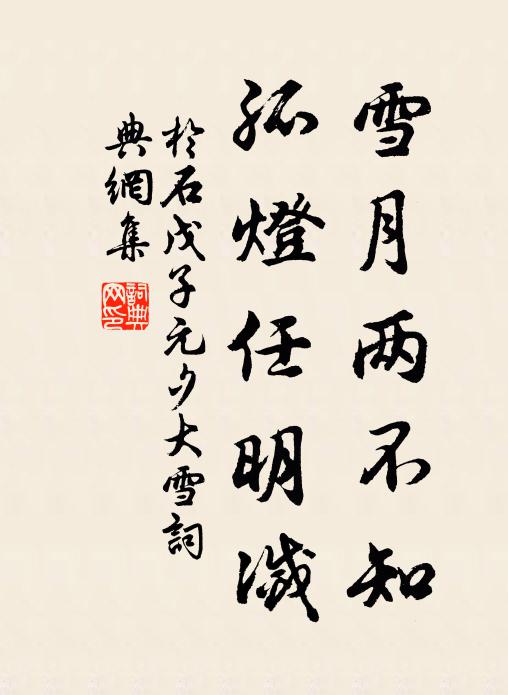 雪月两不知
孤燈任明滅
於石戊子元夕大雪詞
典網集
詞典
网印